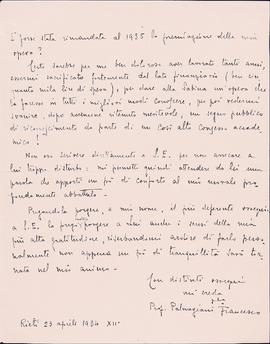 È forse stata rimandata al 1935 la premiazione della mia
opera?
Certo sarebbe per me ben doloroso aver lavorato tanti anni,
essermi sacrificato fortemente dal lato finanziario (ben cin
quanta mila lire di spesa), per dare alla Sabina un'opera che
la facesse in tutti i migliori modi conoscere, per poi vedermi
svanire, dopo essermi ritenuto meritevole, un segno pubblico
di riconoscimento da parte di un così alto Consesso accade
mico!
Non oso scrivere direttamente a S. E. per non arrecare a
lui troppo disturbo: mi permetto quindi attendere da lei una
parola che apporti un pò di conforto al mio morale pro
fondamente abbattuto.
Pregandola porgere, a mio nome, il più deferente ossequio
a S. E., la prego porgere a lui anche i sensi della mia
più alta gratitudine, riserbandomi ardire di farlo perso
nalmente non appena un pò di tranquillità sarà tor
nata nel mio animo.
Con distinti ossequi
mi creda
Prof. Palmegiani Francesco
Rieti 23 aprile 1934 XII°